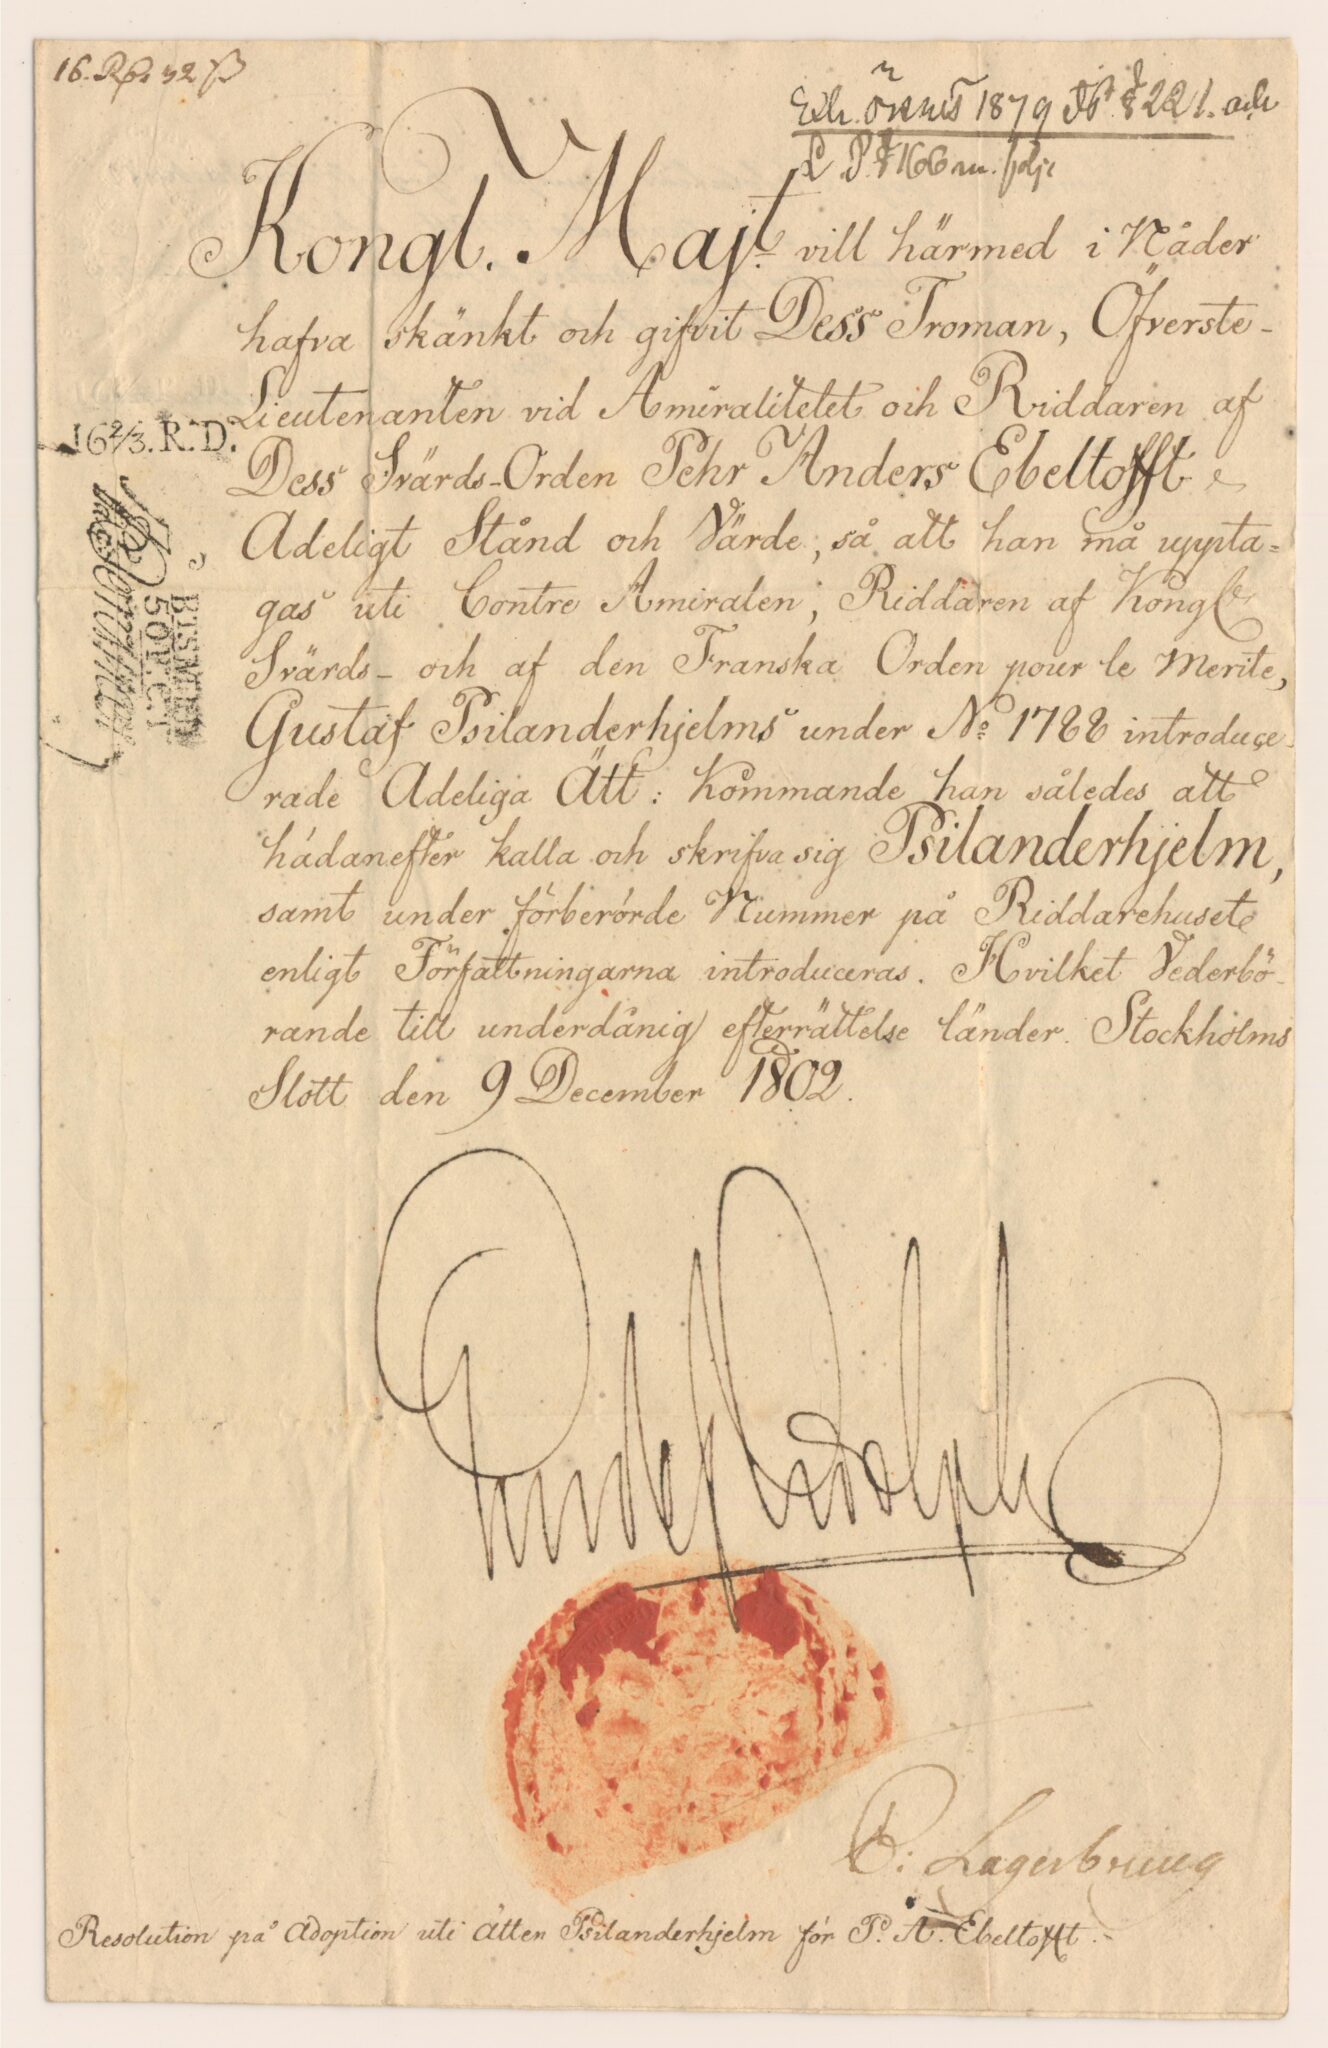 16. Rd. 32 ß
1879 221. och
166 m.
Kongl. Majt. vill härmed i Nåder
hafva skänkt och gifvit Dess Troman, Öfverste-
Lieutenanten vid Amiralitetet och Riddaren af
16 2/3. R. D.
Dess Svärds-Orden Pehr Anders Ebeltofft
Adeligt Stånd och Värde, så att han må uppta=
gas uti Contre Amiralen, Riddaren af Kongl.
Svärds- och af den Franska Orden pour le Merite,
Gustaf Psilanderhjelms under No 1788 introduce-
rade Adeliga Ätt: Kommande han således att
hädanefter kalla och skrifva sig Psilanderhjelm,
samt under förberörde Nummer på Riddarehuset
enligt Författningarna introduceras. Hvilket Vederbö-
rande till underdånig efterrättelse länder. Stockholms
Slott den 9 December 1802.
Gustaf Adolph
Lagerbring
Resolution på Adoption uti Ätten Psilanderhjelm för P. A. Ebeltofft.